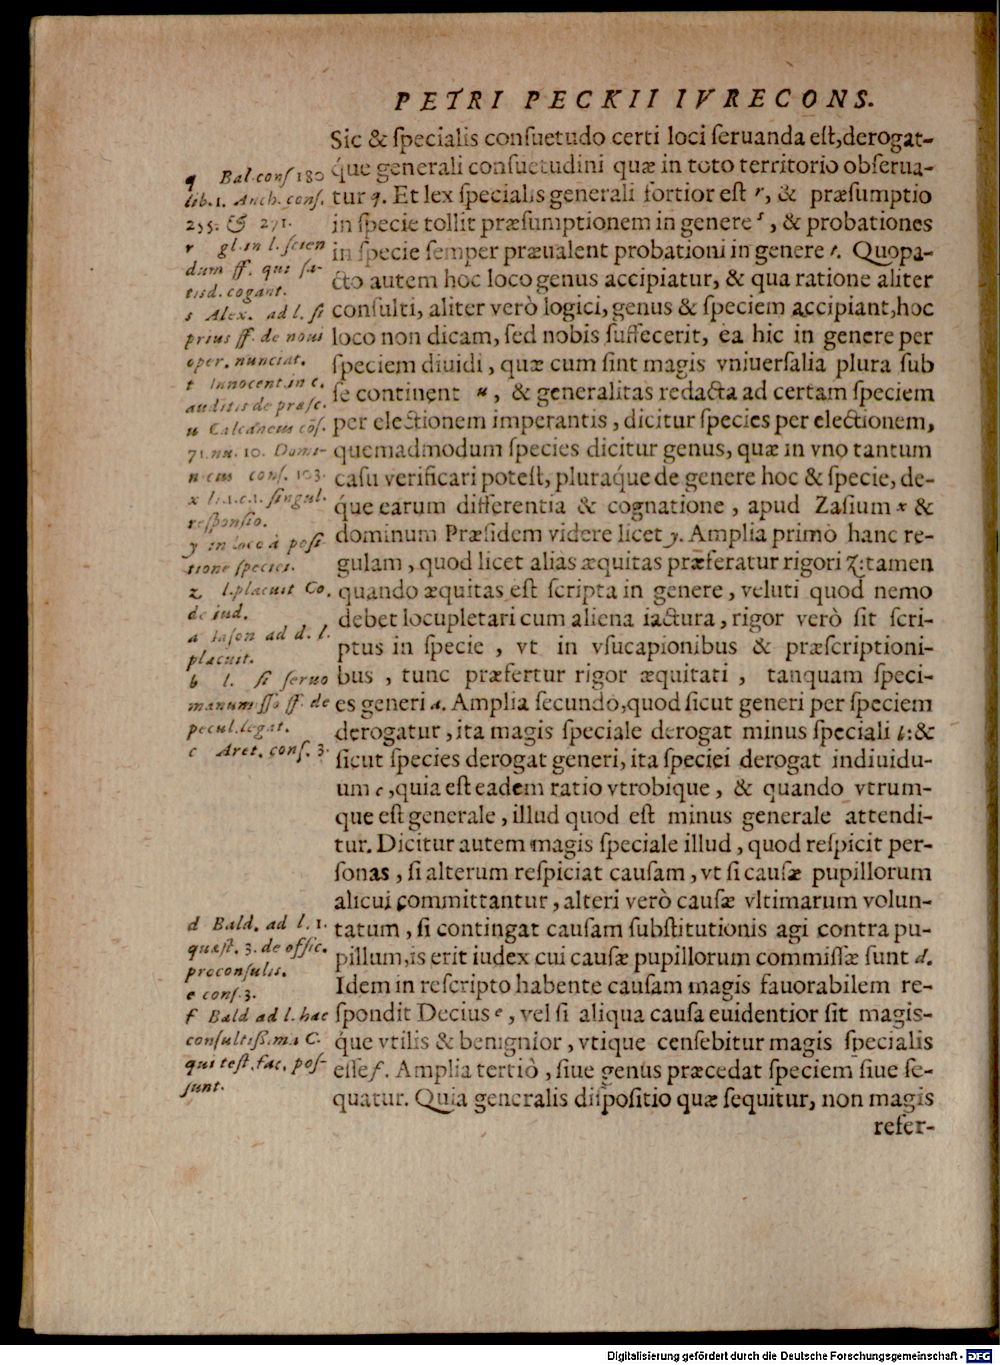 PETRI PECKII IVRECONS.
Sic & ſpecialis conſuetudo certi loci ſeruanda eſt,derogat-
q́ue generali conſuetudini quæ in toto territorio obſerua-
tur q. Et lex ſpecialis generali fortior eſt r, & præſumptio
in ſpecie tollit præſumptionem in genere s, & probationes
in ſpecie ſemper præualent probationi in genere t. Quopa-
cto autem hoc loco genus accipiatur, & qua ratione aliter
conſulti, aliter verò logici, genus & ſpeciem accipiant,hoc
loco non dicam, ſed nobis ſuffecerit, ea hic in genere per
ſpeciem diuidi, quæ cum ſint magis vniuerſalia plura ſub
ſe continent u, & generalitas redacta ad certam ſpeciem
per electionem imperantis, dicitur ſpecies per electionem,
quemadmodum ſpecies dicitur genus, quæ in vno tantum
caſu verificari poteſt, pluraq́ue de genere hoc & ſpecie, de-
q́ue earum differentia & cognatione, apud Zaſium x &
dominum Præſidem videre licet y. Amplia primò hanc re-
gulam, quod licet alias æquitas præferatur rigori z:tamen
quando æquitas eſt ſcripta in genere, veluti quod nemo
debet locupletari cum aliena iactura, rigor verò ſit ſcri-
ptus in ſpecie, vt in vſucapionibus & præſcriptioni-
bus, tunc præfertur rigor æquitati, tanquam ſpeci-
es generi a. Amplia ſecundò,quod ſicut generi per ſpeciem
derogatur, ita magis ſpeciale derogat minus ſpeciali b:&
ſicut ſpecies derogat generi, ita ſpeciei derogat indiuidu-
um c,quia eſt eadem ratio vtrobique, & quando vtrum-
que eſt generale, illud quod eſt minus generale attendi-
tur. Dicitur autem magis ſpeciale illud, quod reſpicit per-
ſonas, ſi alterum reſpiciat cauſam, vt ſi cauſæ pupillorum
alicui committantur, alteri verò cauſæ vltimarum volun-
tatum, ſi contingat cauſam ſubſtitutionis agi contra pu-
pillum,is erit iudex cui cauſæ pupillorum commiſſæ ſunt d.
Idem in reſcripto habente cauſam magis fauorabilem re-
ſpondit Decius e, vel ſi aliqua cauſa euidentior ſit magis-
q́ue vtilis & benignior, vtique cenſebitur magis ſpecialis
eſſe f. Amplia tertiò, ſiue genus præcedat ſpeciem ſiue ſe-
quatur. Quia generalis diſpoſitio quæ ſequitur, non magis
refer-
q Bal.conſ 180
lib.1. Anch. conſ.
255. & 271.
r gl.in l. ſcien
dum ff. qui ſa-
tisd. cogant.
s Alex. ad l. ſi
prius ff. de noui
oper. nunciat.
t Innocent.in c.
auditis de præſc.
u Calcaneus cōſ.
71.nu. 10. Domi-
nicus conſ. 103.
x li.1.c.1. ſingul.
reſponſio.
y in loco à poſi
tione ſpeciei.
z l.placuit Co.
de iud.
a Iaſon ad d. l.
placuit.
b l. ſi ſeruo
manumiſſo ff. de
pecul.legat.
c Aret. conſ. 3.
d Bald. ad l. 1.
quæſt. 3. de offic.
proconſulis.
e conſ. 3.
f Bald ad l. hac
conſultiſſima C.
qui teſt. fac. poſ-
ſunt.
Digitalisierung gefördert durch die Deutsche Forschungsgemeinschaft - DFG